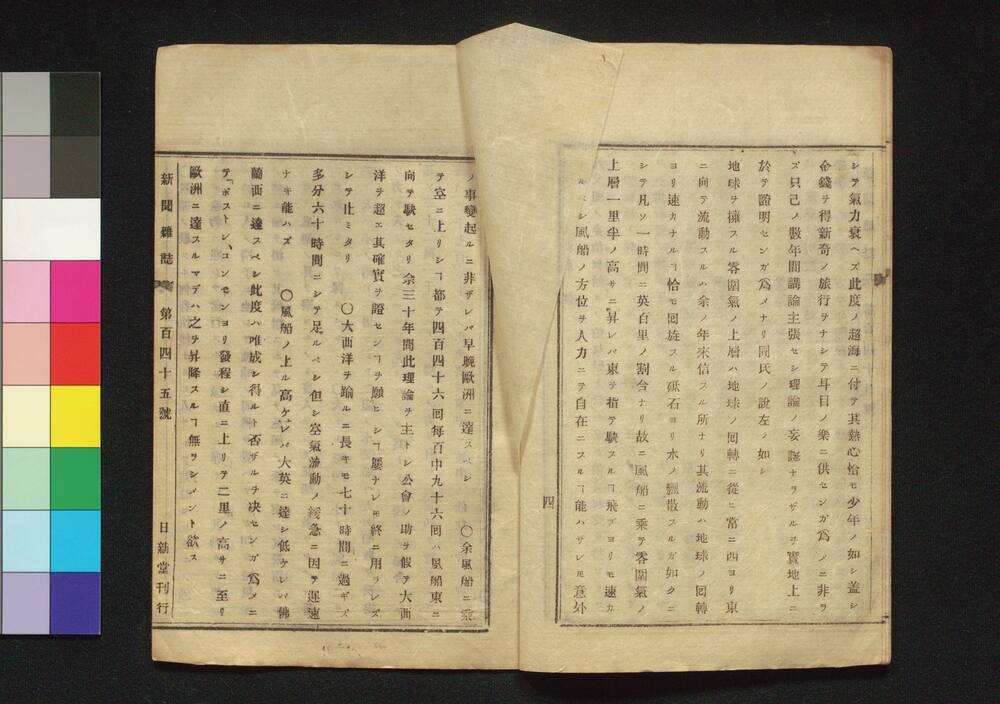 シテ氣力衰ヘズ此度ノ超海ニ付テ其熱心恰モ少年ノ如シ蓋シ
金錢ヲ得新奇ノ旅行ヲナシテ耳目ノ樂ニ供センガ爲メニ非ラ
ズ只己ノ數年間講論主張セシ理論ノ妄誕ナラザルヲ實地上ニ
於テ證明センガ爲メナリ同氏ノ說左ノ如シ
地球ヲ擁スル雰圍氣ノ上層ハ地球ノ回轉ニ從ヒ常ニ西ヨリ東
ニ向テ流動スルハ余ノ年來信スル所ナリ其流動ハ地球ノ回轉
ヨリ速カナルヿ恰モ回旋スル砥石ヨリ水ノ飄散スルガ如クニ
シテ凡ソ一時間ニ英百里ノ割合ナリ故ニ風船ニ乘テ雰圍氣ノ
上層一里半ノ高サニ昇レバ東ヲ指テ駛スルヿ飛ブヨリモ速カ
ルベシ風船ノ方位ヲ人力ニテ自在ニスルヿ能ハザレ𪜈意外
四
ノ事變起ルニ非ザレバ早晩歐洲ニ達スベシ 〇余風船ニ乘
テ空ニ上リシヿ都テ四百四十六回每百中九十六回ハ風船東ニ
向テ駛セタリ余三十年間此理論ヲ主トシ公會ノ助ヲ假テ大西
洋ヲ超エ其確實ヲ證センヿヲ願ヒシヿ屢ナレ𪜈終ニ用ラレズ
シテ止ミタリ 〇大西洋ヲ踰ルニ長キモ七十時間ニ過ギズ
多分六十時間ニシテ足ルベシ但シ空氣流動ノ緩急ニ因テ遲速
ナキ能ハズ 〇風船ノ上ル高ケレバ大英ニ達シ低ケレバ佛
蘭西ニ達スベシ此度ハ唯成シ得ルト否ザルヲ决センガ爲メニ
テ「ボストン、コンモンヨリ發程シ直ニ上リテ二里ノ高サニ至リ
歐洲ニ達スルマデハ之ヲ昇降スルヿ無ラシメント欲ス
新聞雜誌 第百四十五號 日新堂刊行